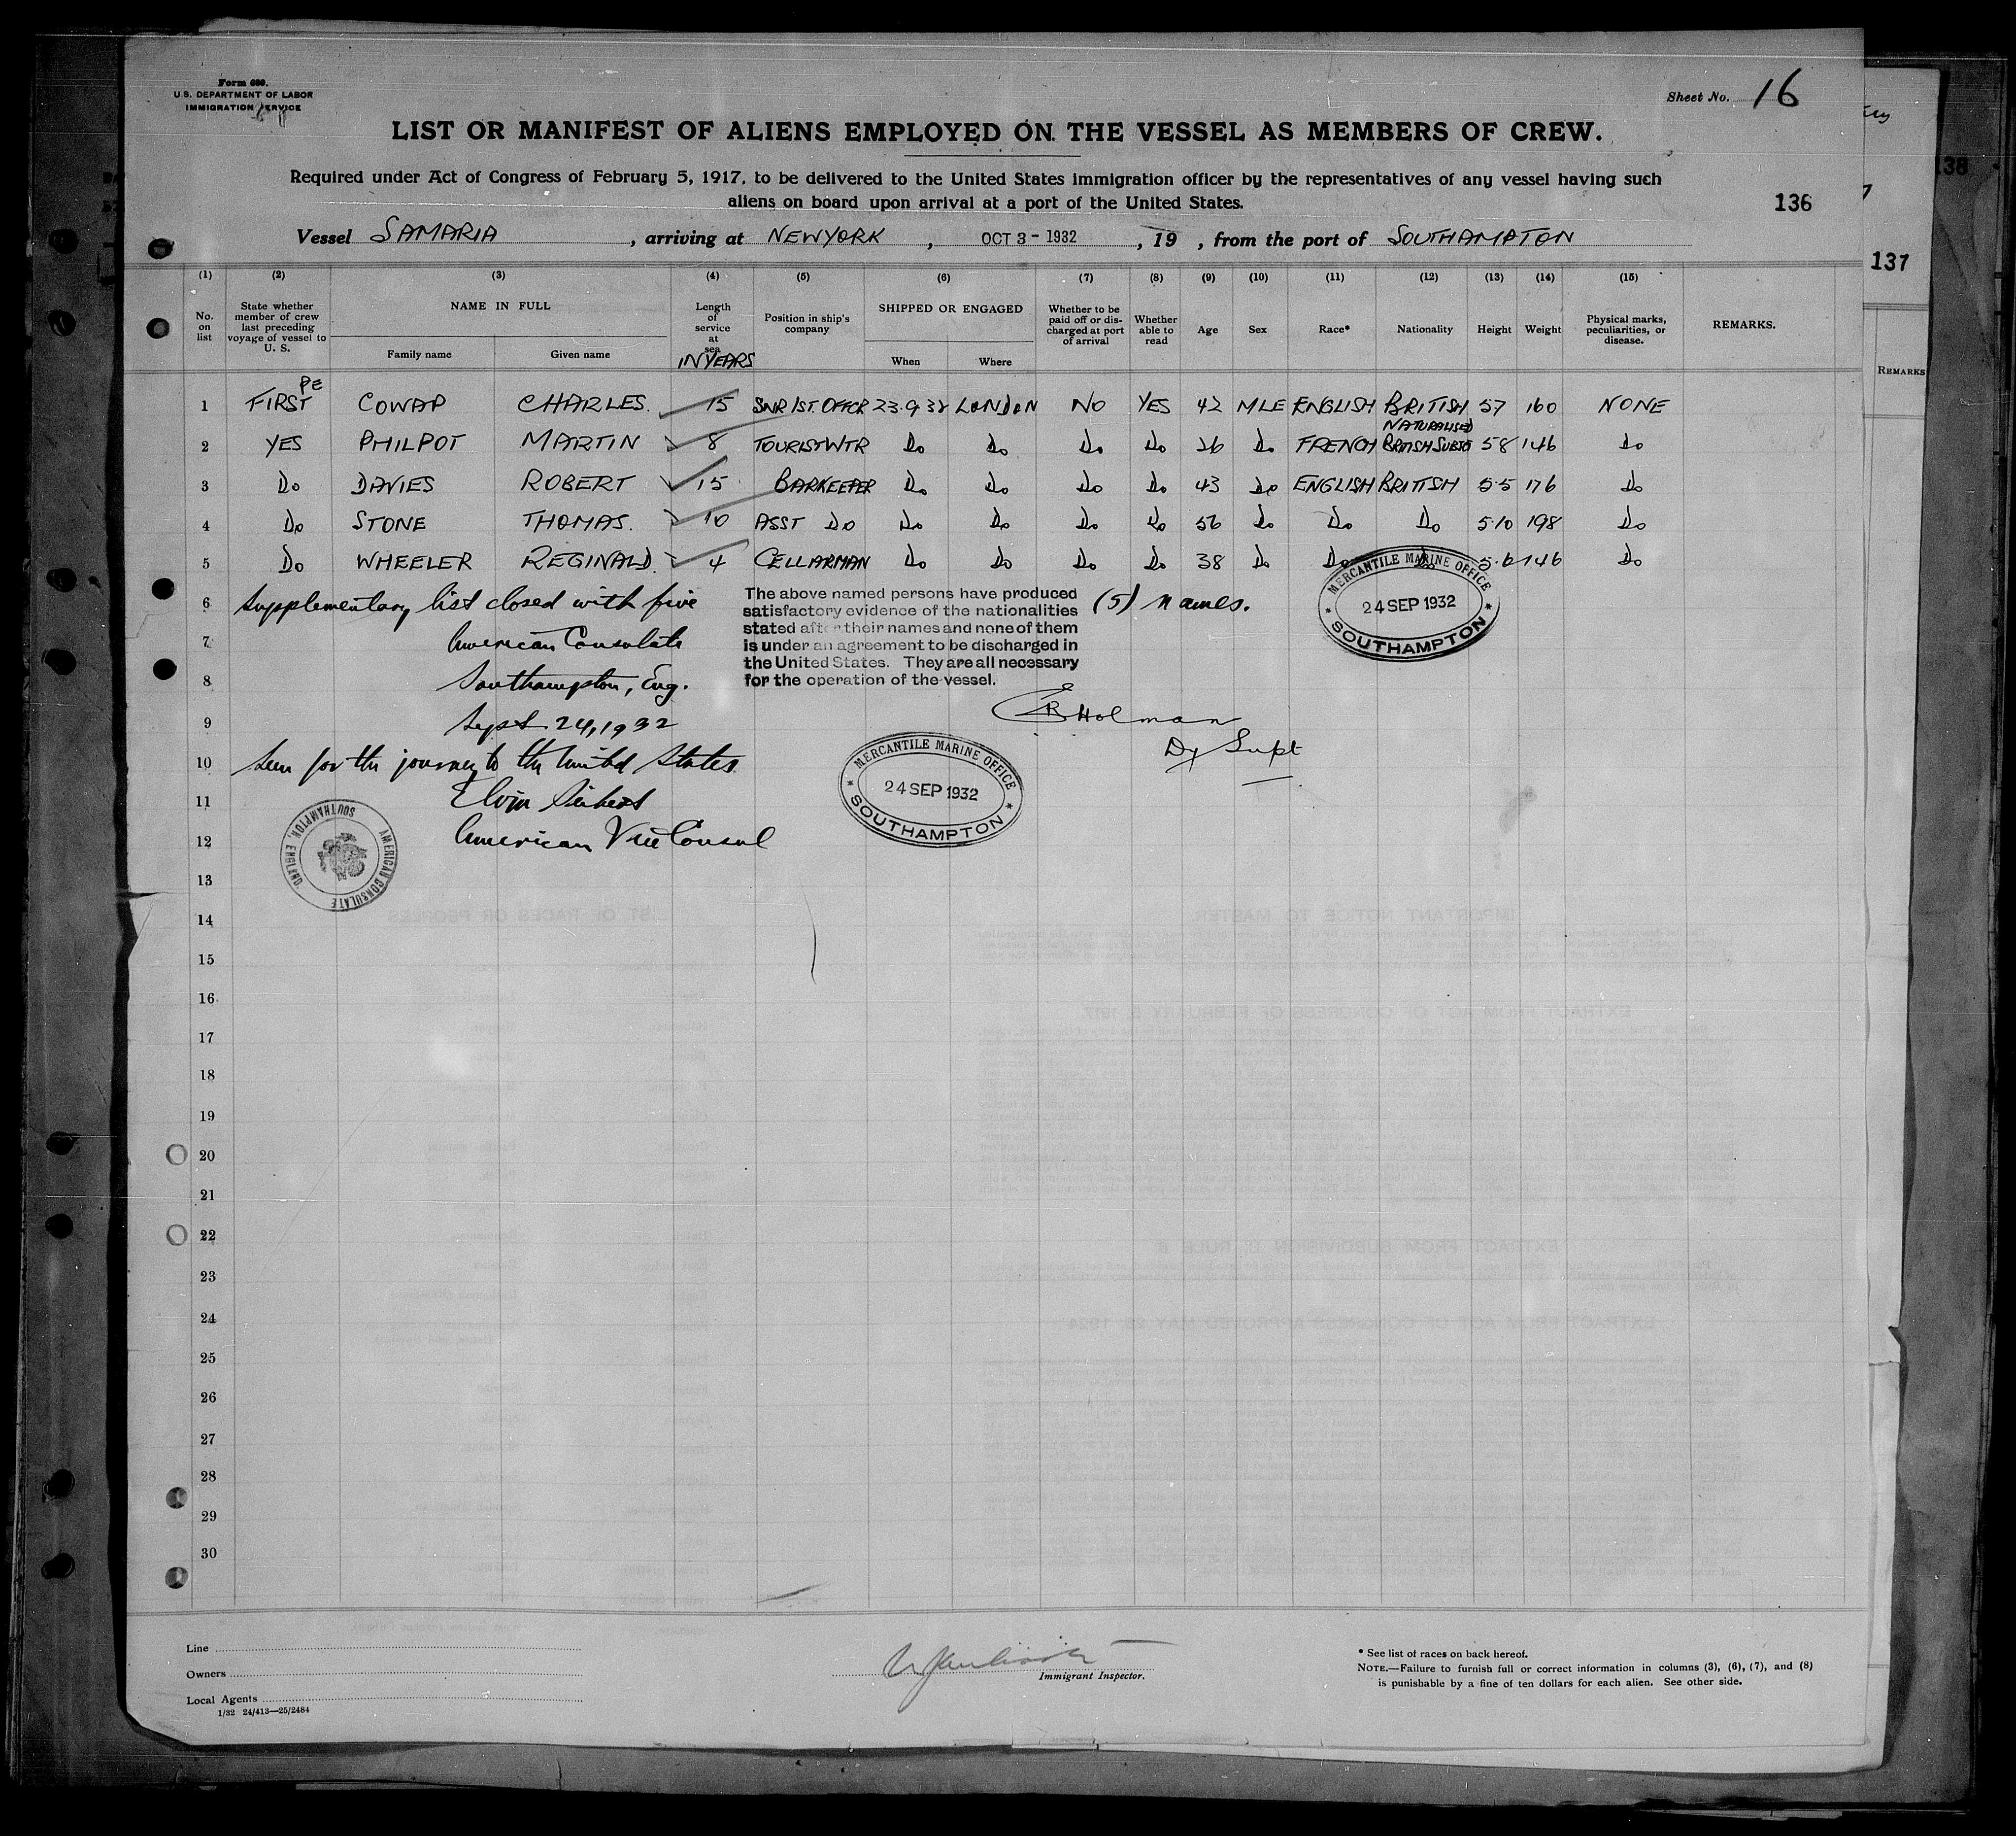 Form 680.
U.S. DEPARTMENT OF LABOR
IMMIGRATION SERVICE
Sheet No. 16
LIST OR MANIFEST OF ALIENS EMPLOYED ON THE VESSEL AS MEMBERS OF CREW.
Required under Act of Congress of February 5, 1917, to be delivered to the United States immigration officer by the representatives of any vessel having such
aliens on board upon arrival at a port of the United States.
136
138
137
Vessel SAMARIA, arriving at NEWYORK, OCT 3 - 1932, 19 , from the port of SOUTHAMPTON
(1) (2) (3) (4) (5) (6) (7) (8) (9) (10) (11) (12) (13) (14) (15)
No. on list
State whether member of crew last preceding voyage of vessel to U. S.
NAME IN FULL
Family name Given name
Length of service at sea IN YEARS
Position in ship's company
SHIPPED OR ENGAGED
When Where
Whether to be paid off or discharged at port of arrival
Whether able to read
Age
Sex
Race*
Nationality
Height
Weight
Physical marks, peculiarities, or disease.
REMARKS.
REMARKS
1 FIRST COWAP CHARLES. 15 SNR 1ST. OFFCR 23.9.32 LONDON NO YES 42 MLE ENGLISH BRITISH 57 160 NONE
2 YES PHILPOT MARTIN 8 TOURISTWTR Do Do Do Do 26 Do FRENCH NATURALISED BRITISH SUBTS 58 146 Do
3 Do DAVIES ROBERT 15 BARKEEPER Do Do Do Do 43 Do ENGLISH BRITISH 5.5 176 Do
4 Do STONE THOMAS. 10 ASST DO Do Do Do Do 56 Do Do Do 5.10 198 Do
5 Do WHEELER REGINALD. 4 CELLARMAN Do Do Do Do 38 Do Do Do 5.6 146 Do
6 Supplementary list closed with five (5) names.
The above named persons have produced
satisfactory evidence of the nationalities
stated after their names and none of them
is under an agreement to be discharged in
the United States. They are all necessary
for the operation of the vessel.
MERCANTILE MARINE OFFICE
24 SEP 1932
SOUTHAMPTON
7 American Consulate
8 Southampton, Eng.
9 Sept. 24, 1932
Holman
Dy Supt
10 Seen for the journey to the United States
11 Elvin Seibert
12 American Vice Consul
AMERICAN CONSULATE
SOUTHAMPTON, ENGLAND.
MERCANTILE MARINE OFFICE
24 SEP 1932
SOUTHAMPTON
13
14
15
16
17
18
19
20
21
22
23
24
25
26
27
28
29
30
Line
Owners
Local Agents
1/32 24/413—25/2484
Immigrant Inspector.
* See list of races on back hereof.
NOTE.—Failure to furnish full or correct information in columns (3), (6), (7), and (8)
is punishable by a fine of ten dollars for each alien. See other side.